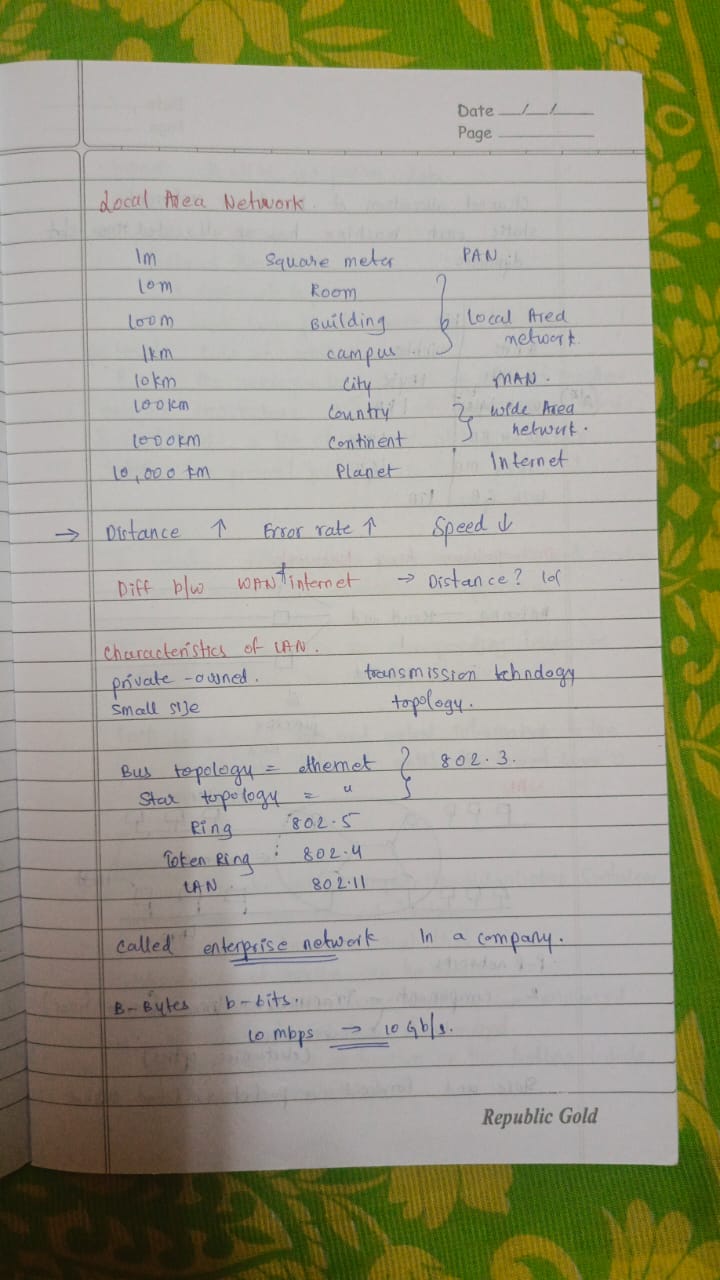 Date __/__/__
Page ________
Local Area Network.
1m Square meter PAN
10m Room
100m Building Local Area
network.
1km campus
10km City MAN.
100km Country Wide Area
network.
1000km Continent
10,000 km Planet Internet
→ Distance ↑ Error rate ↑ Speed ↓
Diff b/w WAN + internet → Distance?
Characteristics of LAN.
private-owned. transmission tehndogy
Small size topology.
Bus topology = ethernet } 802.3.
Star topology = "
Ring 802.5
Token Ring : 802.4
LAN 802.11
Called enterprise network In a company.
B-Bytes b-bits.
10 mbps → 10 Gb/s.
Republic Gold